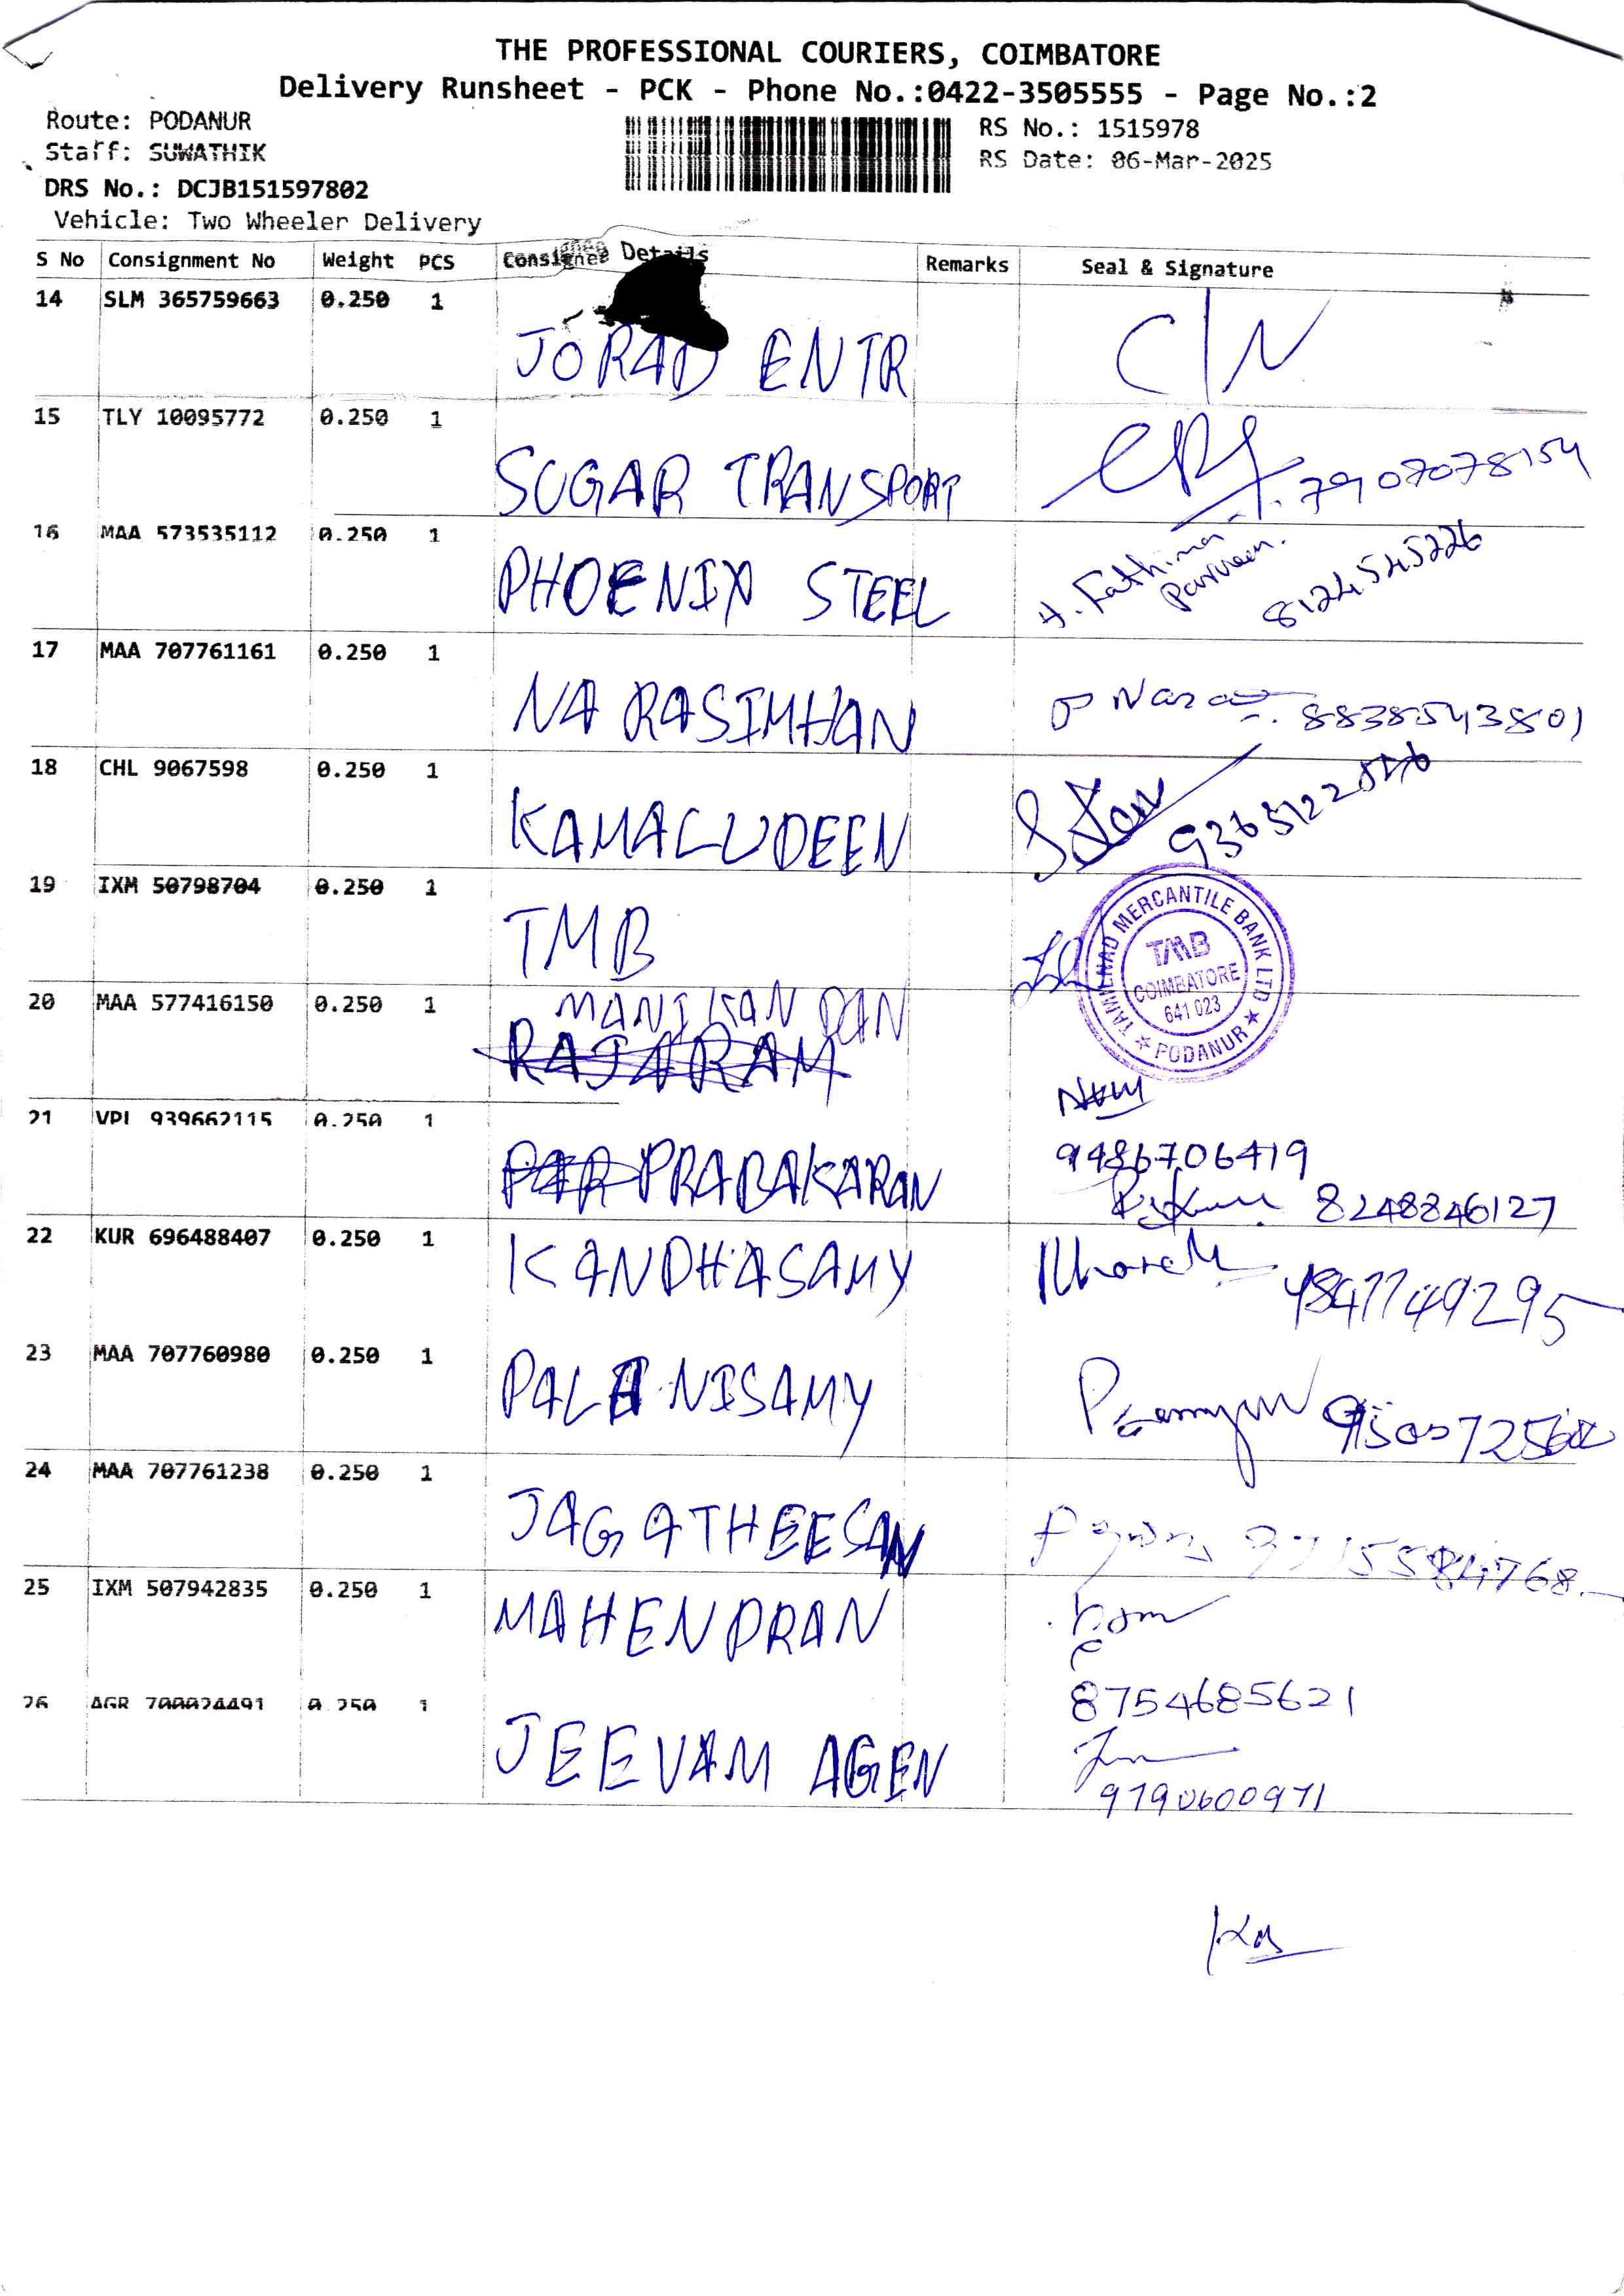 THE PROFESSIONAL COURIERS, COIMBATORE
Delivery Runsheet - PCK - Phone No.:0422-3505555 - Page No.:2
Route: PODANUR
Staff: SUWATHIK
DRS No.: DCJB151597802
Vehicle: Two Wheeler Delivery
RS No.: 1515978
RS Date: 06-Mar-2025
S No Consignment No Weight PCS Consignee Details Remarks Seal & Signature
14 SLM 365759663 0.250 1
JORAD ENTR
15 TLY 10095772 0.250 1
SUGAR TRANSPORT 7907078154
16 MAA 573535112 0.250 1
PHOENIX STEEL H. Fathima Parveen. 8124545226
17 MAA 707761161 0.250 1
NARASIMHAN 8838543801
18 CHL 9067598 0.250 1
KAMALUDEEN
19 IXM 50798704 0.250 1
TMB
TAMILNAD MERCANTILE BANK LTD
TMB
COIMBATORE
641 023
PODANUR
20 MAA 577416150 0.250 1
MANIKANDAN
RAJARAM
21 VPI 939662115 0.250 1
9486706419
PAR PRABAKARAN 8248846127
22 KUR 696488407 0.250 1
KANDHASAMY
23 MAA 707760980 0.250 1
PALANISAMY
24 MAA 707761238 0.250 1
JAGATHEESAN
25 IXM 507942835 0.250 1
MAHENDRAN
8754685621
26 AGR 700024491 0.250 1
JEEVAM AGEN
9790600971